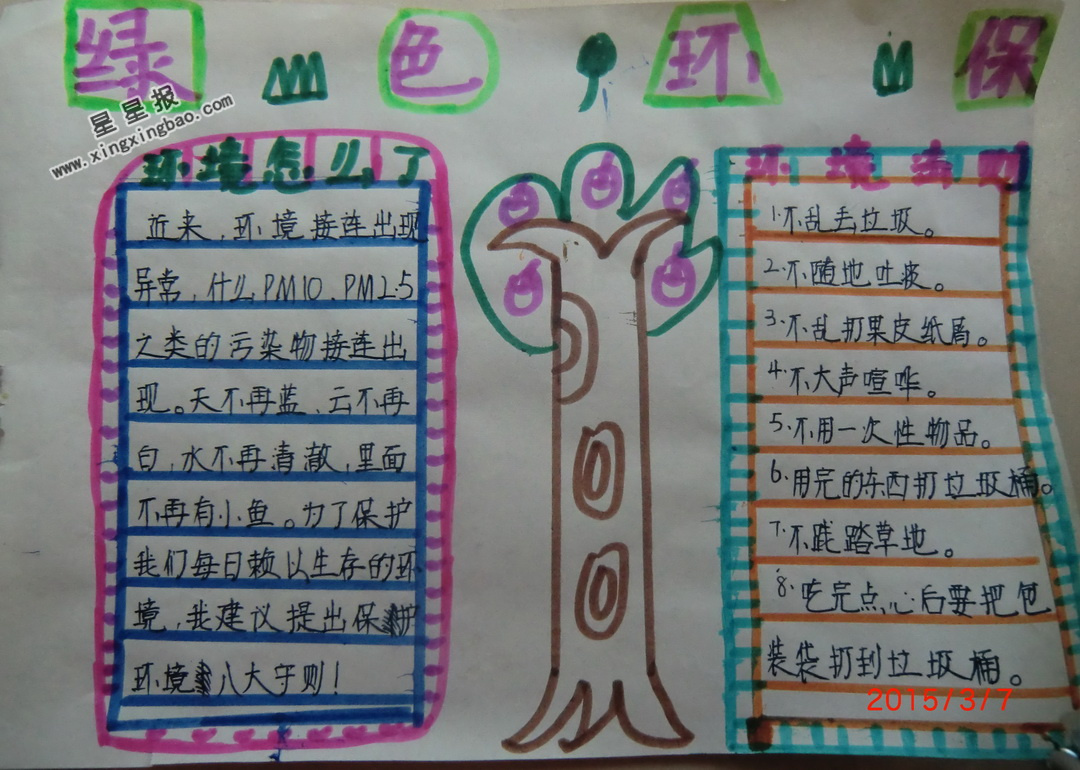 绿色环保
星星报
www.xingxingbao.com
环境怎么了
近来,环境接连出现
异常,什么PM10、PM2.5
之类的污染物接连出
现。天不再蓝、云不再
白,水不再清澈,里面
不再有小鱼。为了保护
我们每日赖以生存的环
境,我建议提出保护
环境八大守则!
环境守则
1.不乱丢垃圾。
2.不随地吐痰。
3.不乱扔果皮纸屑。
4.不大声喧哗。
5.不用一次性物品。
6.用完的东西扔垃圾桶。
7.不践踏草地。
8.吃完点心后要把包
装袋扔到垃圾桶。
2015/3/7